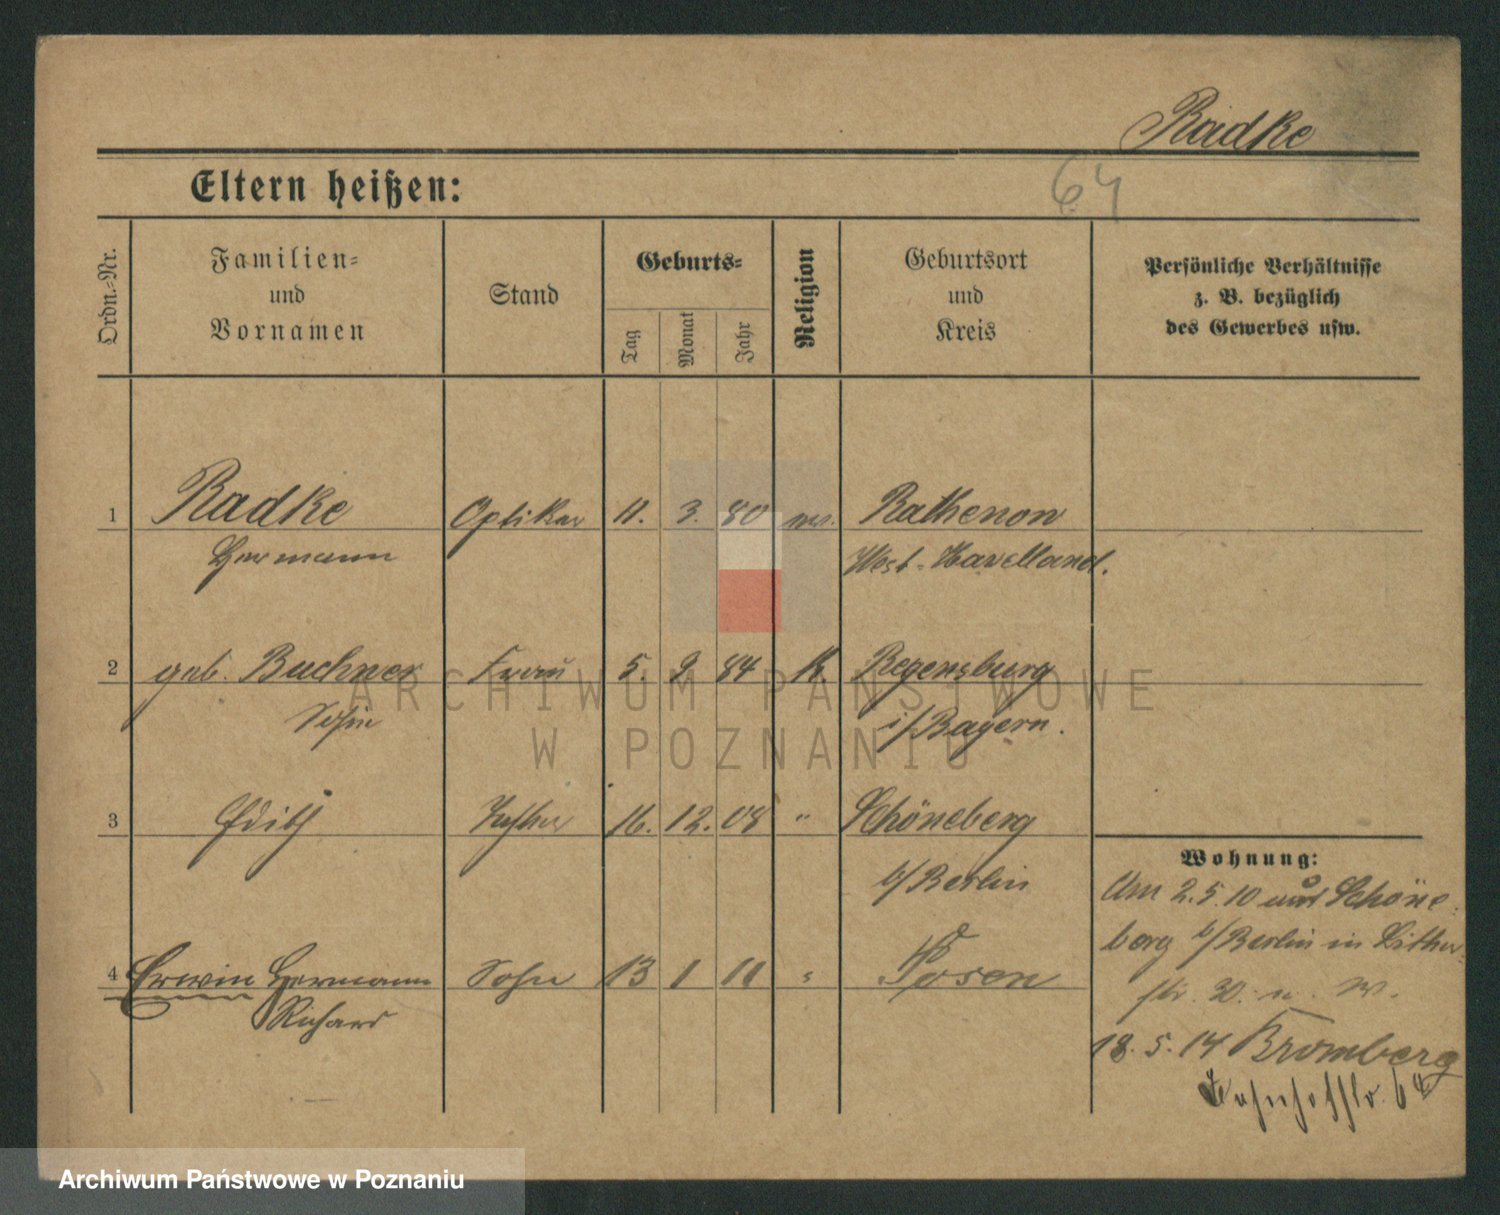 Radke
64
Eltern heißen:
Ordn.-Nr.
Familien-
und
Vornamen
Stand
Geburts-
Tag
Monat
Jahr
Religion
Geburtsort
und
Kreis
Persönliche Verhältnisse
z. B. bezüglich
des Gewerbes usw.
1 Radke Optiker 11. 3. 80 ev. Rathenow
Hermann West-Havelland.
2 geb. Buchner Frau 5. 9. 84 K. Regensburg
i/Bayern.
3 Edith Tochter 16. 12. 08 " Schöneberg
b/Berlin
4 Erwin Hermann Sohn 13 1 11 " Posen
Richard
Wohnung:
Am 2.5.10 aus Schöne-
berg b/Berlin in Luther
str. 30.
18. 5. 14 Bromberg
Bahnhofstr. 64
ARCHIWUM PAŃSTWOWE
W POZNANIU
Archiwum Państwowe w Poznaniu